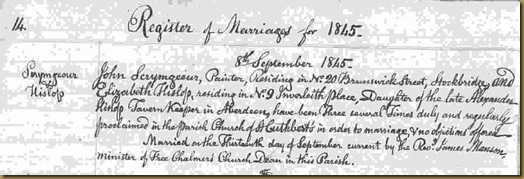 14.
Register of Marriages for 1845.
8th September 1845.
Scrymgeour
&
Hislop
John Scrymgeour, Painter, Residing in No. 20 Brunswick Street, Stockbridge, and
Elizabeth Hislop, residing in No. 9 Inverleith Place, Daughter of the late Alexander
Hislop Tavern Keeper in Aberdeen, have been Three several Times duly and regularly
proclaimed in the Parish Church of St Cuthberts in order to marriage, & no objections offered
Married on the Thirteenth day of September current by the Revd. James Manson,
minister of Free Chalmers Church Dean in this Parish.